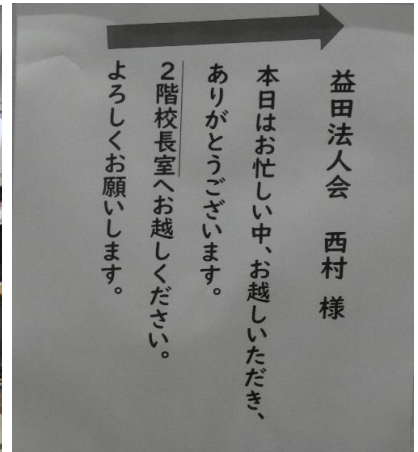 益田法人会　西村 様
本日はお忙しい中、お越しいただき、
ありがとうございます。
２階校長室へお越しください。
よろしくお願いします。